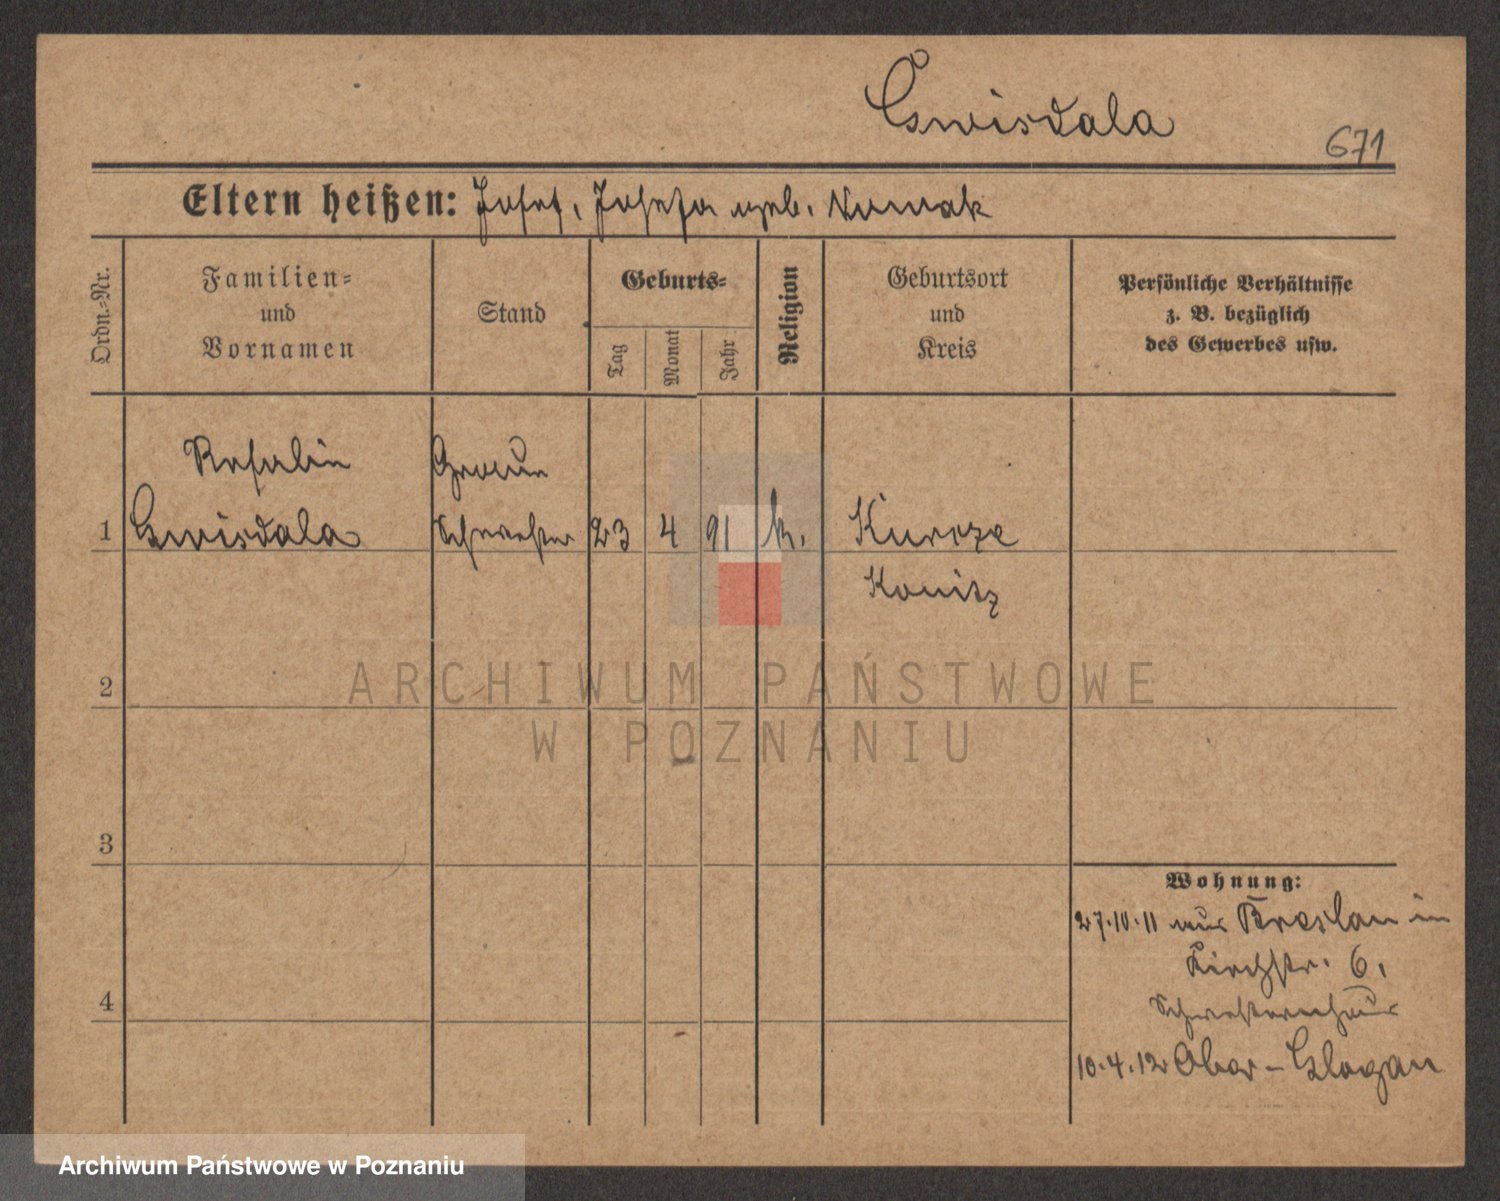 Gwisdala
671
Eltern heißen: Josef, Josefa geb. Nowak
Ordn.-Nr.
Familien-
und
Vornamen
Stand
Geburts-
Tag
Monat
Jahr
Religion
Geburtsort
und
Kreis
Persönliche Verhältnisse
z. B. bezüglich
des Gewerbes usw.
Rosalie
Graue
1 Gwisdala Schwester 23 4 91 k.
Kurcze
Konitz
2
ARCHIWUM PAŃSTWOWE
W POZNANIU
3
Wohnung:
27.10.11 aus Breslau in
Kirchstr. 6,
Schwesternhaus
4
10.4.12 Ober-Glogau
Archiwum Państwowe w Poznaniu